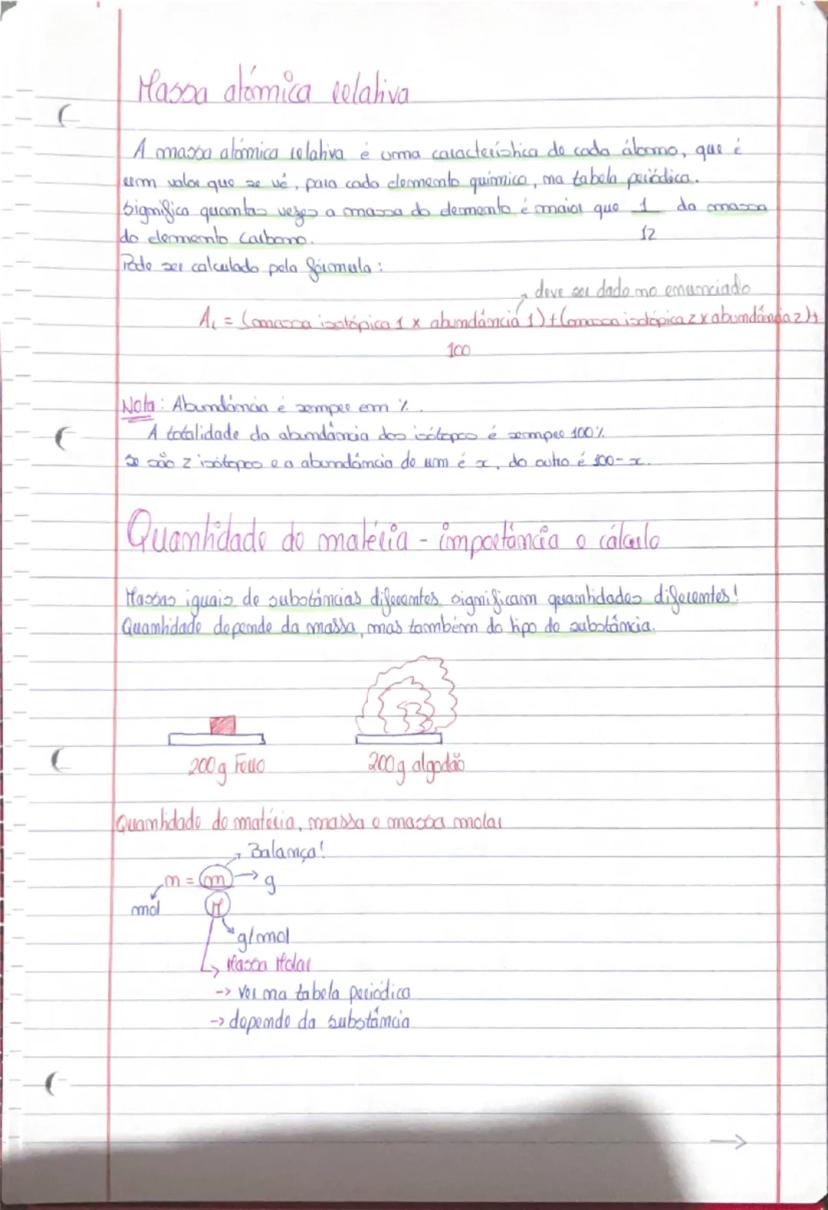 Massa atómica relativa
A massa atómica relativa é uma característica de cada átomo, que é
um valor que se vê, para cada elemento químico, na tabela periódica.
Significa quantas vezes a massa do elemento é maior que 1/12 da massa
do elemento Carbono.
Pode ser calculado pela fórmula:
deve ser dado no enunciado
Ar = (massa isotópica 1 x abundância 1) + (massa isotópica 2 x abundância 2) +
100
Nota: Abundância é sempre em %.
A totalidade da abundância dos isótopos é sempre 100%
Se são 2 isótopos e a abundância de um é x, do outro é 100-x.
Quantidade de matéria - importância e cálculo
Massas iguais de substâncias diferentes significam quantidades diferentes!
Quantidade depende da massa, mas também do tipo de substância.
200g Ferro 200g algodão
Quantidade de matéria, massa e massa molar
Balança!
n = m → g
mol M
g/mol
Massa Molar
-> ver na tabela periódica
-> depende da substância
→